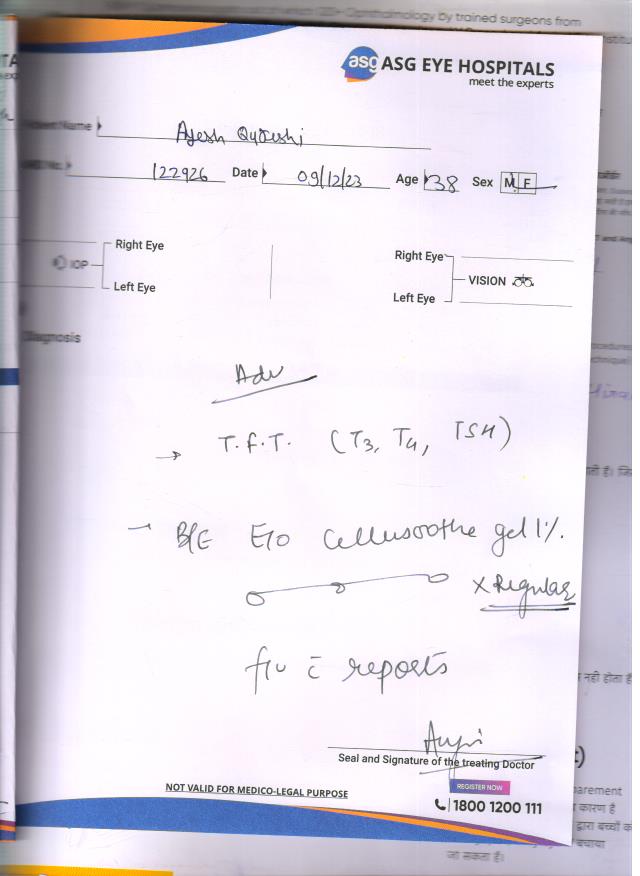 Ophthalmology by trained surgeons from
asg ASG EYE HOSPITALS
meet the experts
Name Ayesh Qureshi
No. 122926 Date 09/12/23 Age 38 Sex M F
IOP Right Eye
Left Eye
Right Eye VISION
Left Eye
Diagnosis
Adv
→ T.F.T. (T3, T4, TSH)
→ B/E E/o Cellusoothe gel 1%.
x Regular
f/u c̄ reports
Seal and Signature of the treating Doctor
NOT VALID FOR MEDICO-LEGAL PURPOSE
REGISTER NOW
1800 1200 111
नही होता है
arement
कारण है
द्वारा बच्चों क
बचाया
जा सकता है।